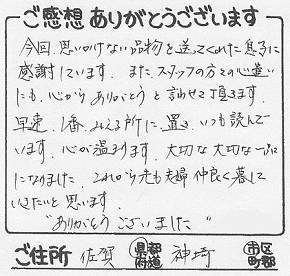 ご感想ありがとうございます
今回、思いかけない品物を送ってくれた息子に
感謝しています。また、スタッフの方々の心遣い
にも、心からありがとうと言わせて頂きます。
早速、1番、みえる所に、置き、いつも読んで
います。心が温まります。大切な大切な一品
になりました。これからも夫婦仲良く暮して
いきたいと思います。
"ありがとうございました"
ご住所 佐賀 都道府県 神埼 市区町郡